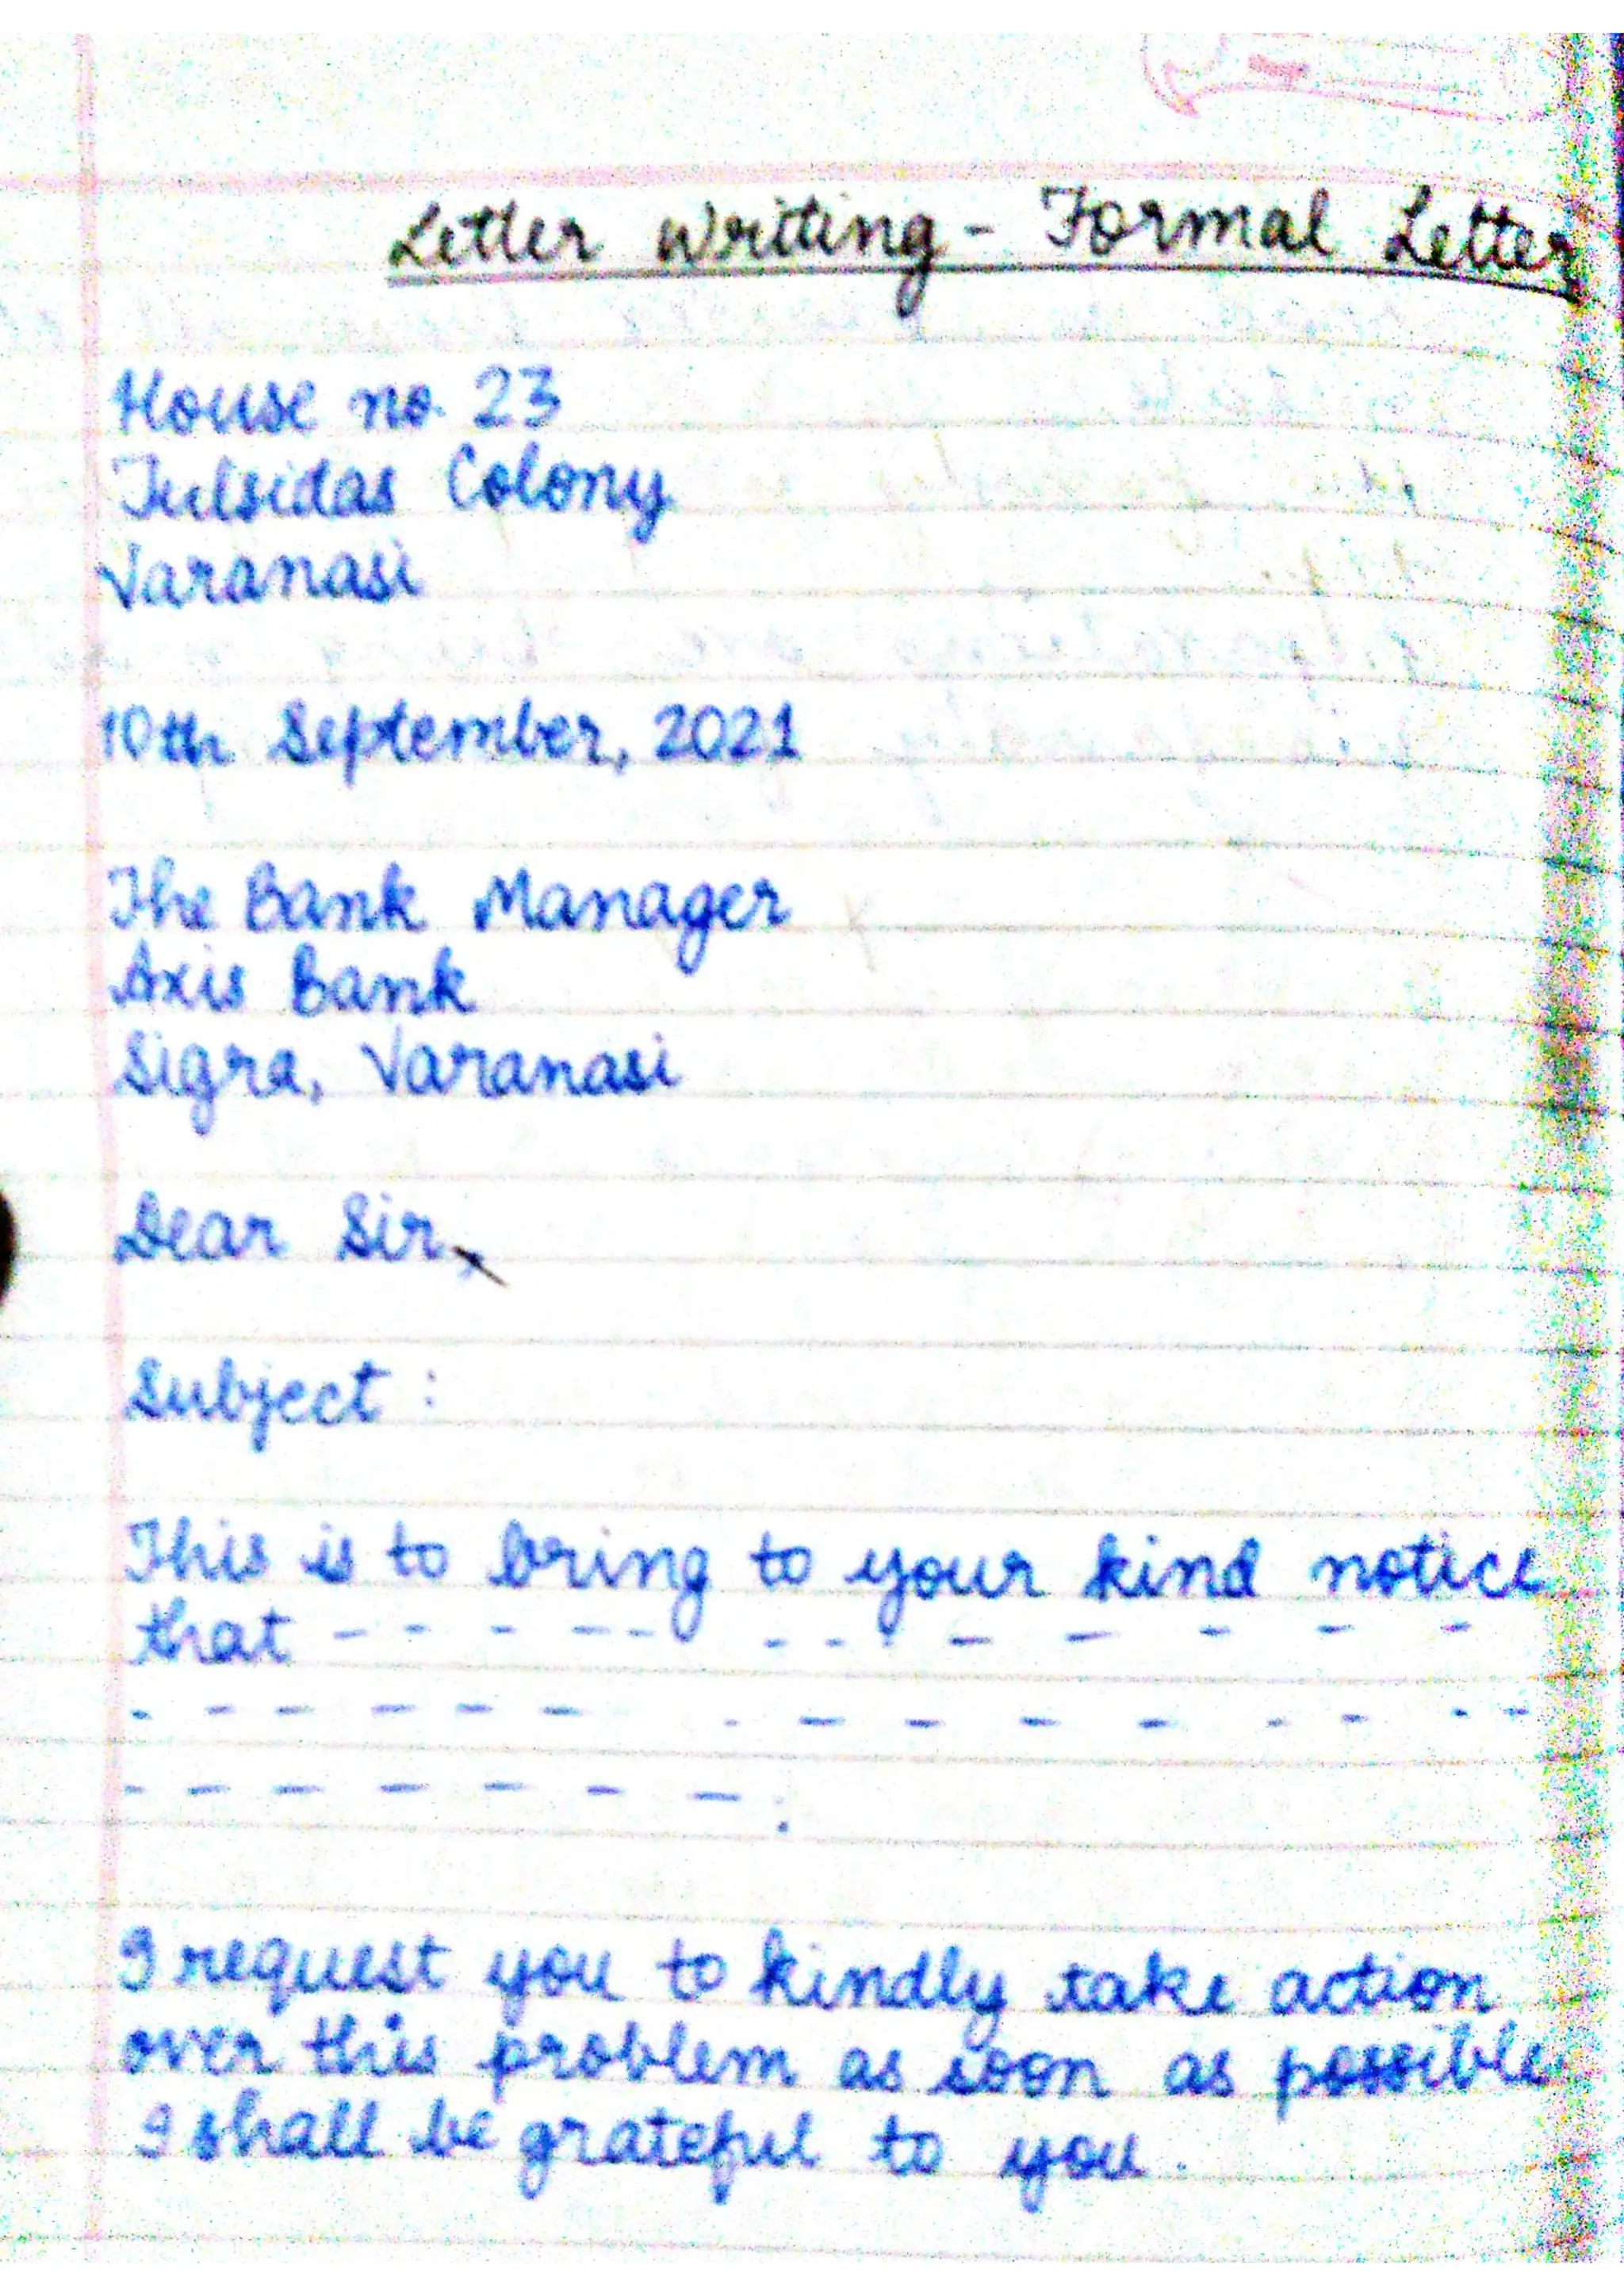 Letter Writing - Formal Letter
House no. 23
Tulsidas Colony
Varanasi
10th September, 2021
The Bank Manager
Axis Bank
Sigra, Varanasi
Dear Sir,
Subject :
This is to bring to your kind notice
that - - - - - - - - - - - - -
- - - - - - - - - - - - - - -
- - - - - - - .
I request you to kindly take action
over this problem as soon as possible
I shall be grateful to you.